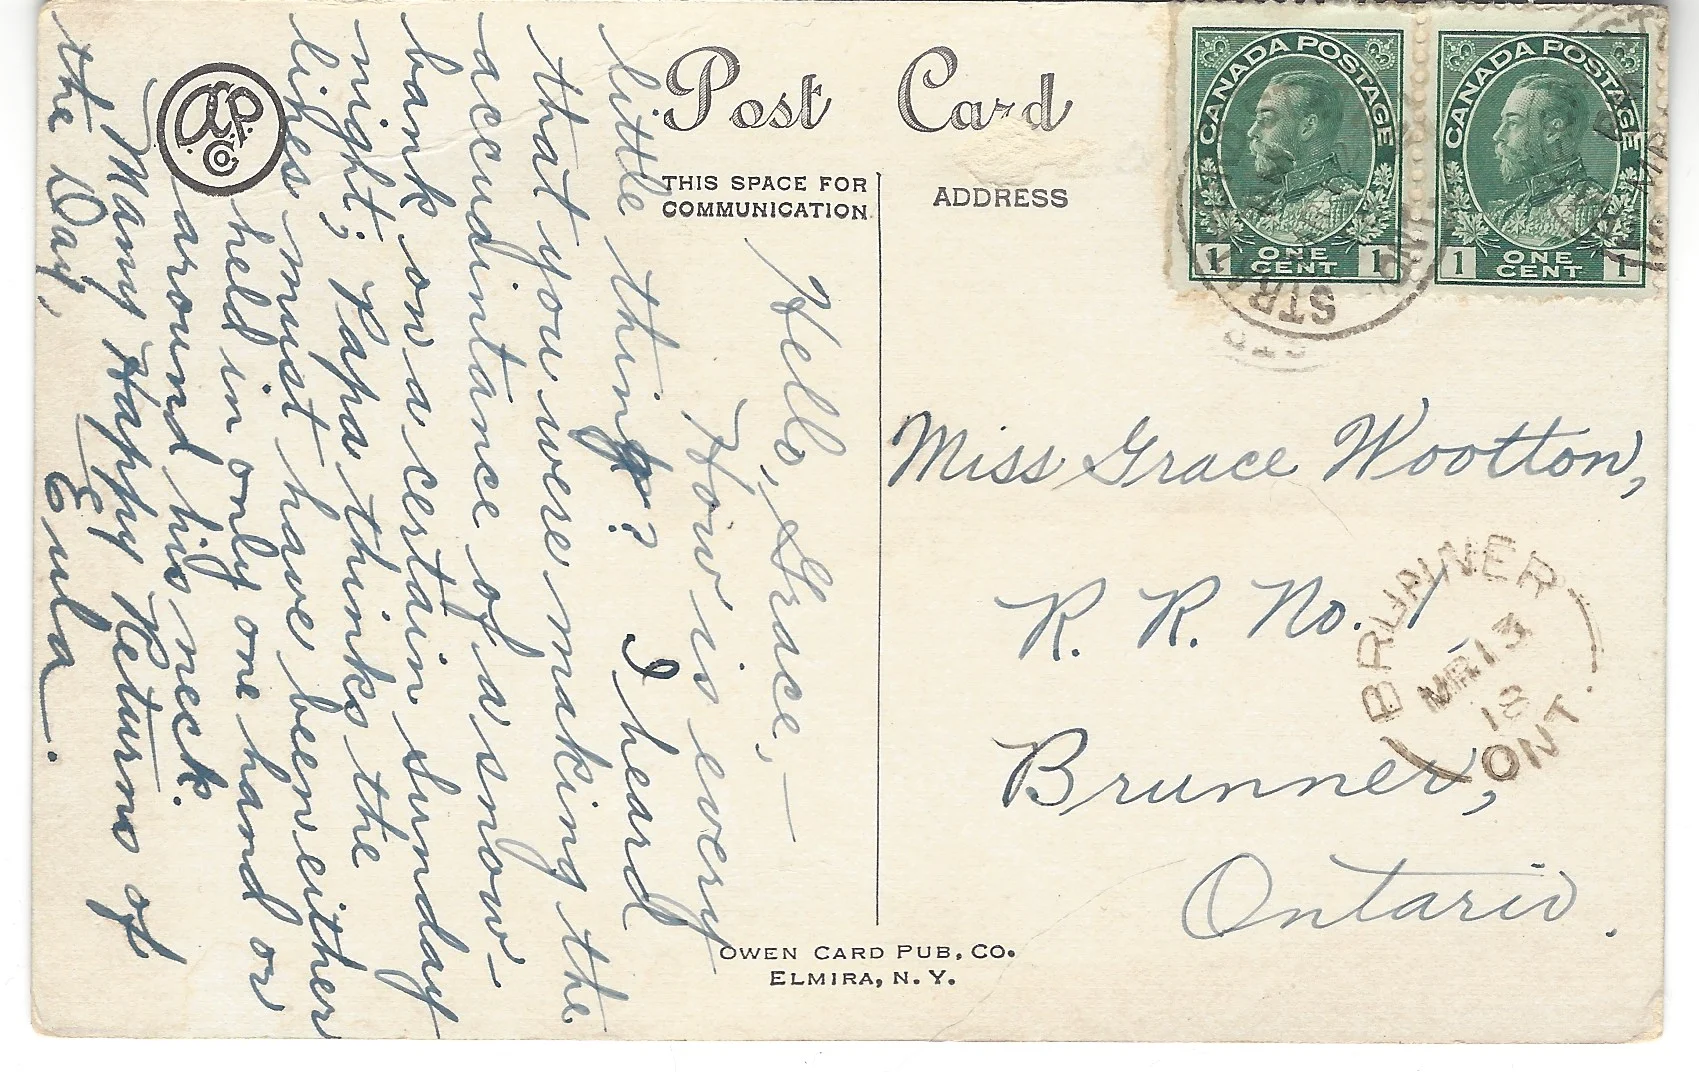 Post Card
THIS SPACE FOR
COMMUNICATION
ADDRESS
CANADA POSTAGE
1 ONE CENT 1
CANADA POSTAGE
1 ONE CENT 1
Hello, Grace,—
How is every
little thing? I heard
that you were making the
accquintance of a snow-
bank on a certain Sunday
night; Papa thinks the
lines must have been either
held in only one hand or
around his neck.
Many Happy Returns of
the Day,
Eula.
Miss Grace Wootton,
R. R. No. 1,
Brunner,
Ontario.
BRUNNER
MR 13
18
ONT.
OWEN CARD PUB. CO.
ELMIRA, N. Y.